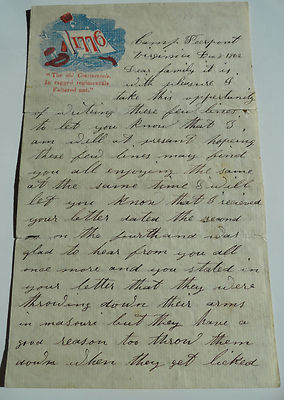 1776
"The old Continentals,
In ragged regimentals
Faltered not."
Camp Pierpont
Virginia 1862
Dear family it is
with pleasure I
take this oppertunity
of writing these few lines
to let you know that I
am well at presant hopeing
these few lines may find
you all enjoying the same
at the same time I will
let you know that I received
your letter dated the second
on the fourth and was
glad to hear from you all
once more and you stated in
your letter that they were
throwing down their arms
in masourie but they have a
good reason too throw them
down when they get licked